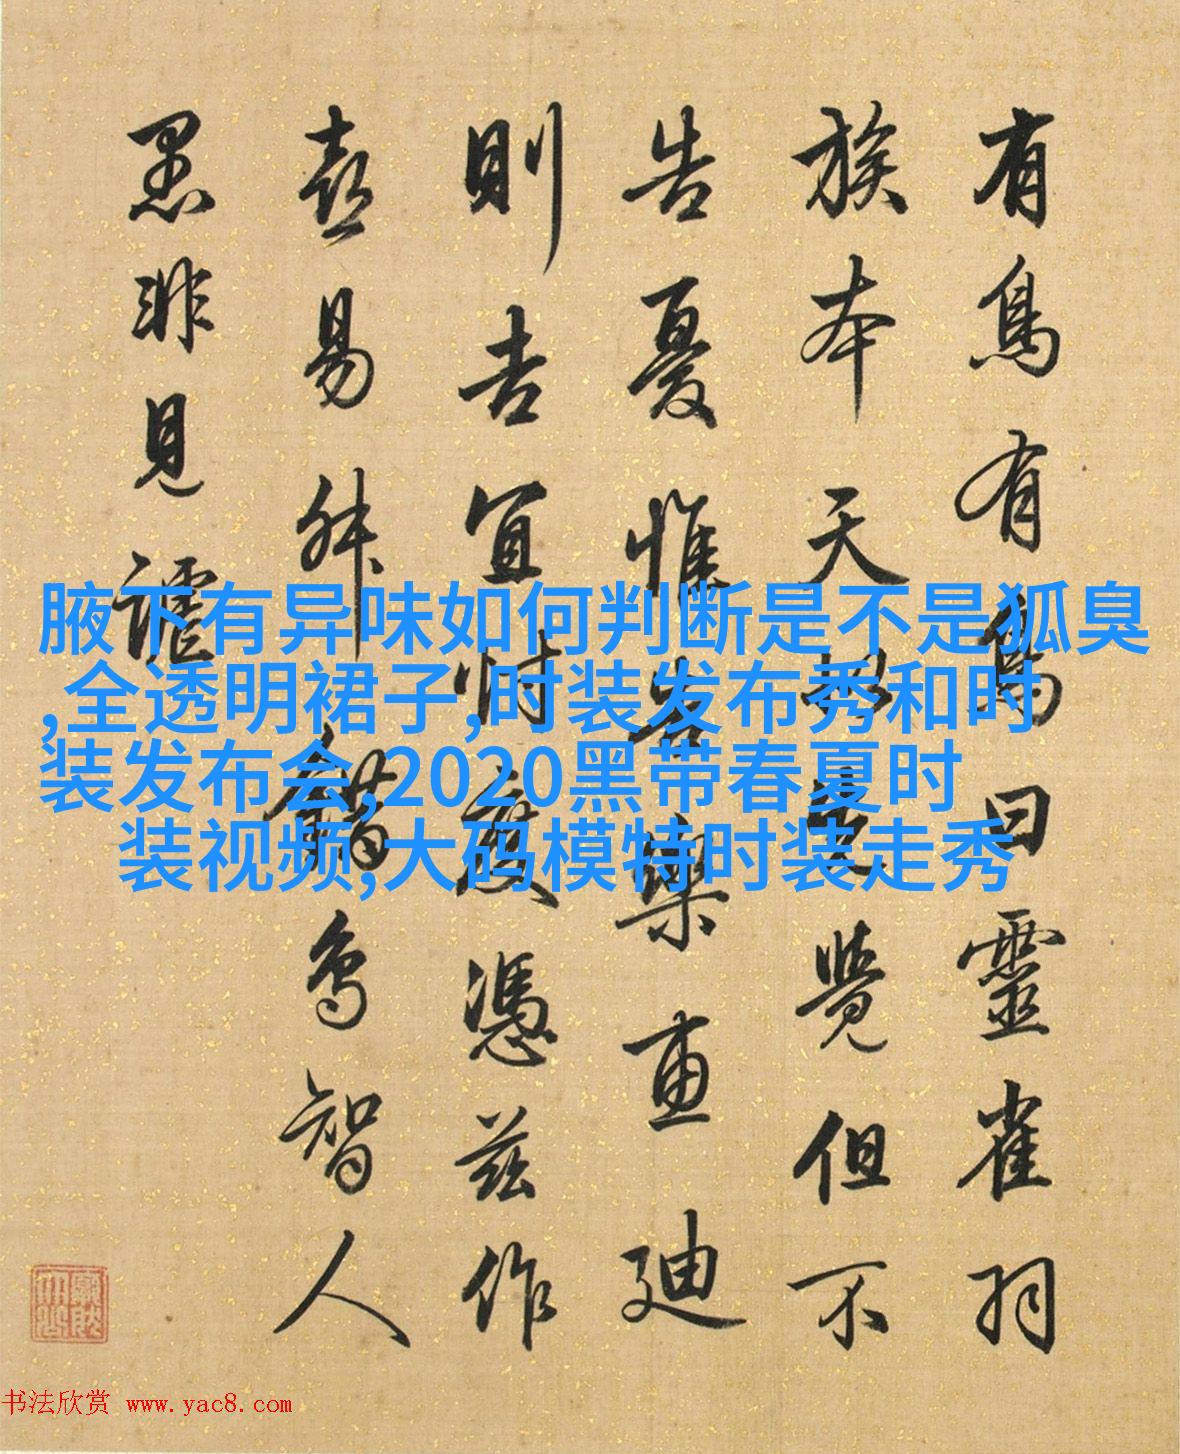 有鳥有鳥曰靈雀羽
族本天覺但不
告憂惟告樂惠廸
則吉宜忖度憑茲作
喜易舛錯烏智人
愚非見謔
腋下有异味如何判断是不是狐臭
,全透明裙子,时装发布秀和时
装发布会,2020黑带春夏时
装视频,大码模特时装走秀
书法欣赏 www.yac8.com